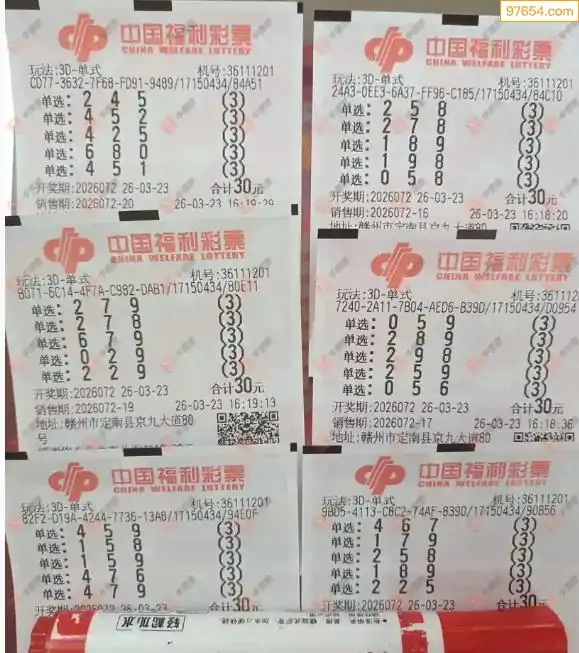 97654.com
中国福利彩票
CHINA WELFARE LOTTERY
玩法:3D-单式 机号:36111201
CD77-3632-7F68-FD91-9489/17150434/84A51
单选: 2 4 5 (3)
单选: 4 5 2 (3)
单选: 4 2 5 (3)
单选: 6 8 0 (3)
单选: 4 5 1 (3)
开奖期:2026072 26-03-23 合计30元
销售期:2026072-20 26-03-23 16:19:29
中国福利彩票
CHINA WELFARE LOTTERY
玩法:3D-单式 机号:36111201
24A3-0EE3-6A37-FF96-C185/17150434/84C10
单选: 2 5 8 (3)
单选: 2 7 8 (3)
单选: 1 8 9 (3)
单选: 1 9 8 (3)
单选: 0 5 8 (3)
开奖期:2026072 26-03-23 合计30元
销售期:2026072-16 26-03-23 16:18:20
地址:赣州市定南县京九大道80
中国福利彩票
CHINA WELFARE LOTTERY
玩法:3D-单式 机号:36111201
B071-6C14-4F7A-C982-DAB1/17150434/80E11
单选: 2 7 9 (3)
单选: 2 7 8 (3)
单选: 6 7 9 (3)
单选: 0 2 9 (3)
单选: 2 2 9 (3)
开奖期:2026072 26-03-23 合计30元
销售期:2026072-19 26-03-23 16:19:13
地址:赣州市定南县京九大道80
号
中国福利彩票
CHINA WELFARE LOTTERY
玩法:3D-单式 机号:361112
7240-2A11-7B04-AED6-B39D/17150434/D0954
单选: 0 5 9 (3)
单选: 2 8 9 (3)
单选: 2 9 8 (3)
单选: 2 5 9 (3)
单选: 0 5 6 (3)
开奖期:2026072 26-03-23 合计30元
销售期:2026072-17 26-03-23 16:18:36
地址:赣州市定南县京九大道80
中国福利彩票
CHINA WELFARE LOTTERY
玩法:3D-单式 机号:36111201
82F2-D19A-4244-7736-13A8/17150434/94E0F
单选: 4 5 9 (3)
单选: 1 5 8 (3)
单选: 1 5 9 (3)
单选: 4 7 6 (3)
单选: 4 7 9 (3)
开奖期:2026072 26-03-23 合计30元
中国福利彩票
CHINA WELFARE LOTTERY
玩法:3D-单式 机号:36111201
9BD5-4113-CBC2-74AF-8390/17150434/90B56
单选: 4 6 7 (3)
单选: 1 7 9 (3)
单选: 2 5 8 (3)
单选: 1 8 9 (3)
单选: 2 2 5 (3)
开奖期:2026072 26-03-23 合计30元
轻松加水